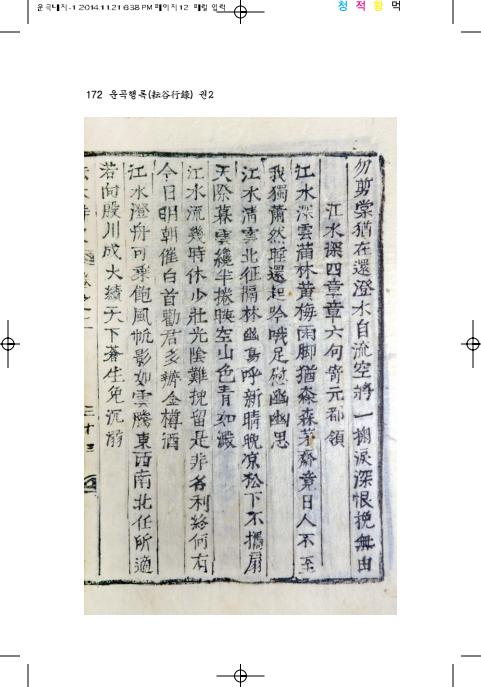 운곡내지-1 2014.11.21 6:38 PM 페이지172 매킬 입력
청 적 황 먹
172 운곡행록(耘谷行錄) 권2
勿剪棠猶在還澄水自流空將一掬淚深恨挽無由
江水深四章章六句寄元都領
江水深雲莆林黃梅雨脚猶森森茅齋竟日人不至
我獨蕭然睡還起吟哦足慰幽幽思
江水淸雲北征隔林幽鳥呼新晴晩凉松下不攜扇
天際暮雲纔半捲晩空山色靑如澱
江水流幾時休少壯光陰難挽留是非名利終何有
今日明朝催白首勸君多辦金樽酒
江水澄舟可乘飽風帆影如雲騰東西南北任所適
若向殷川成大績天下蒼生免沉溺
三十三